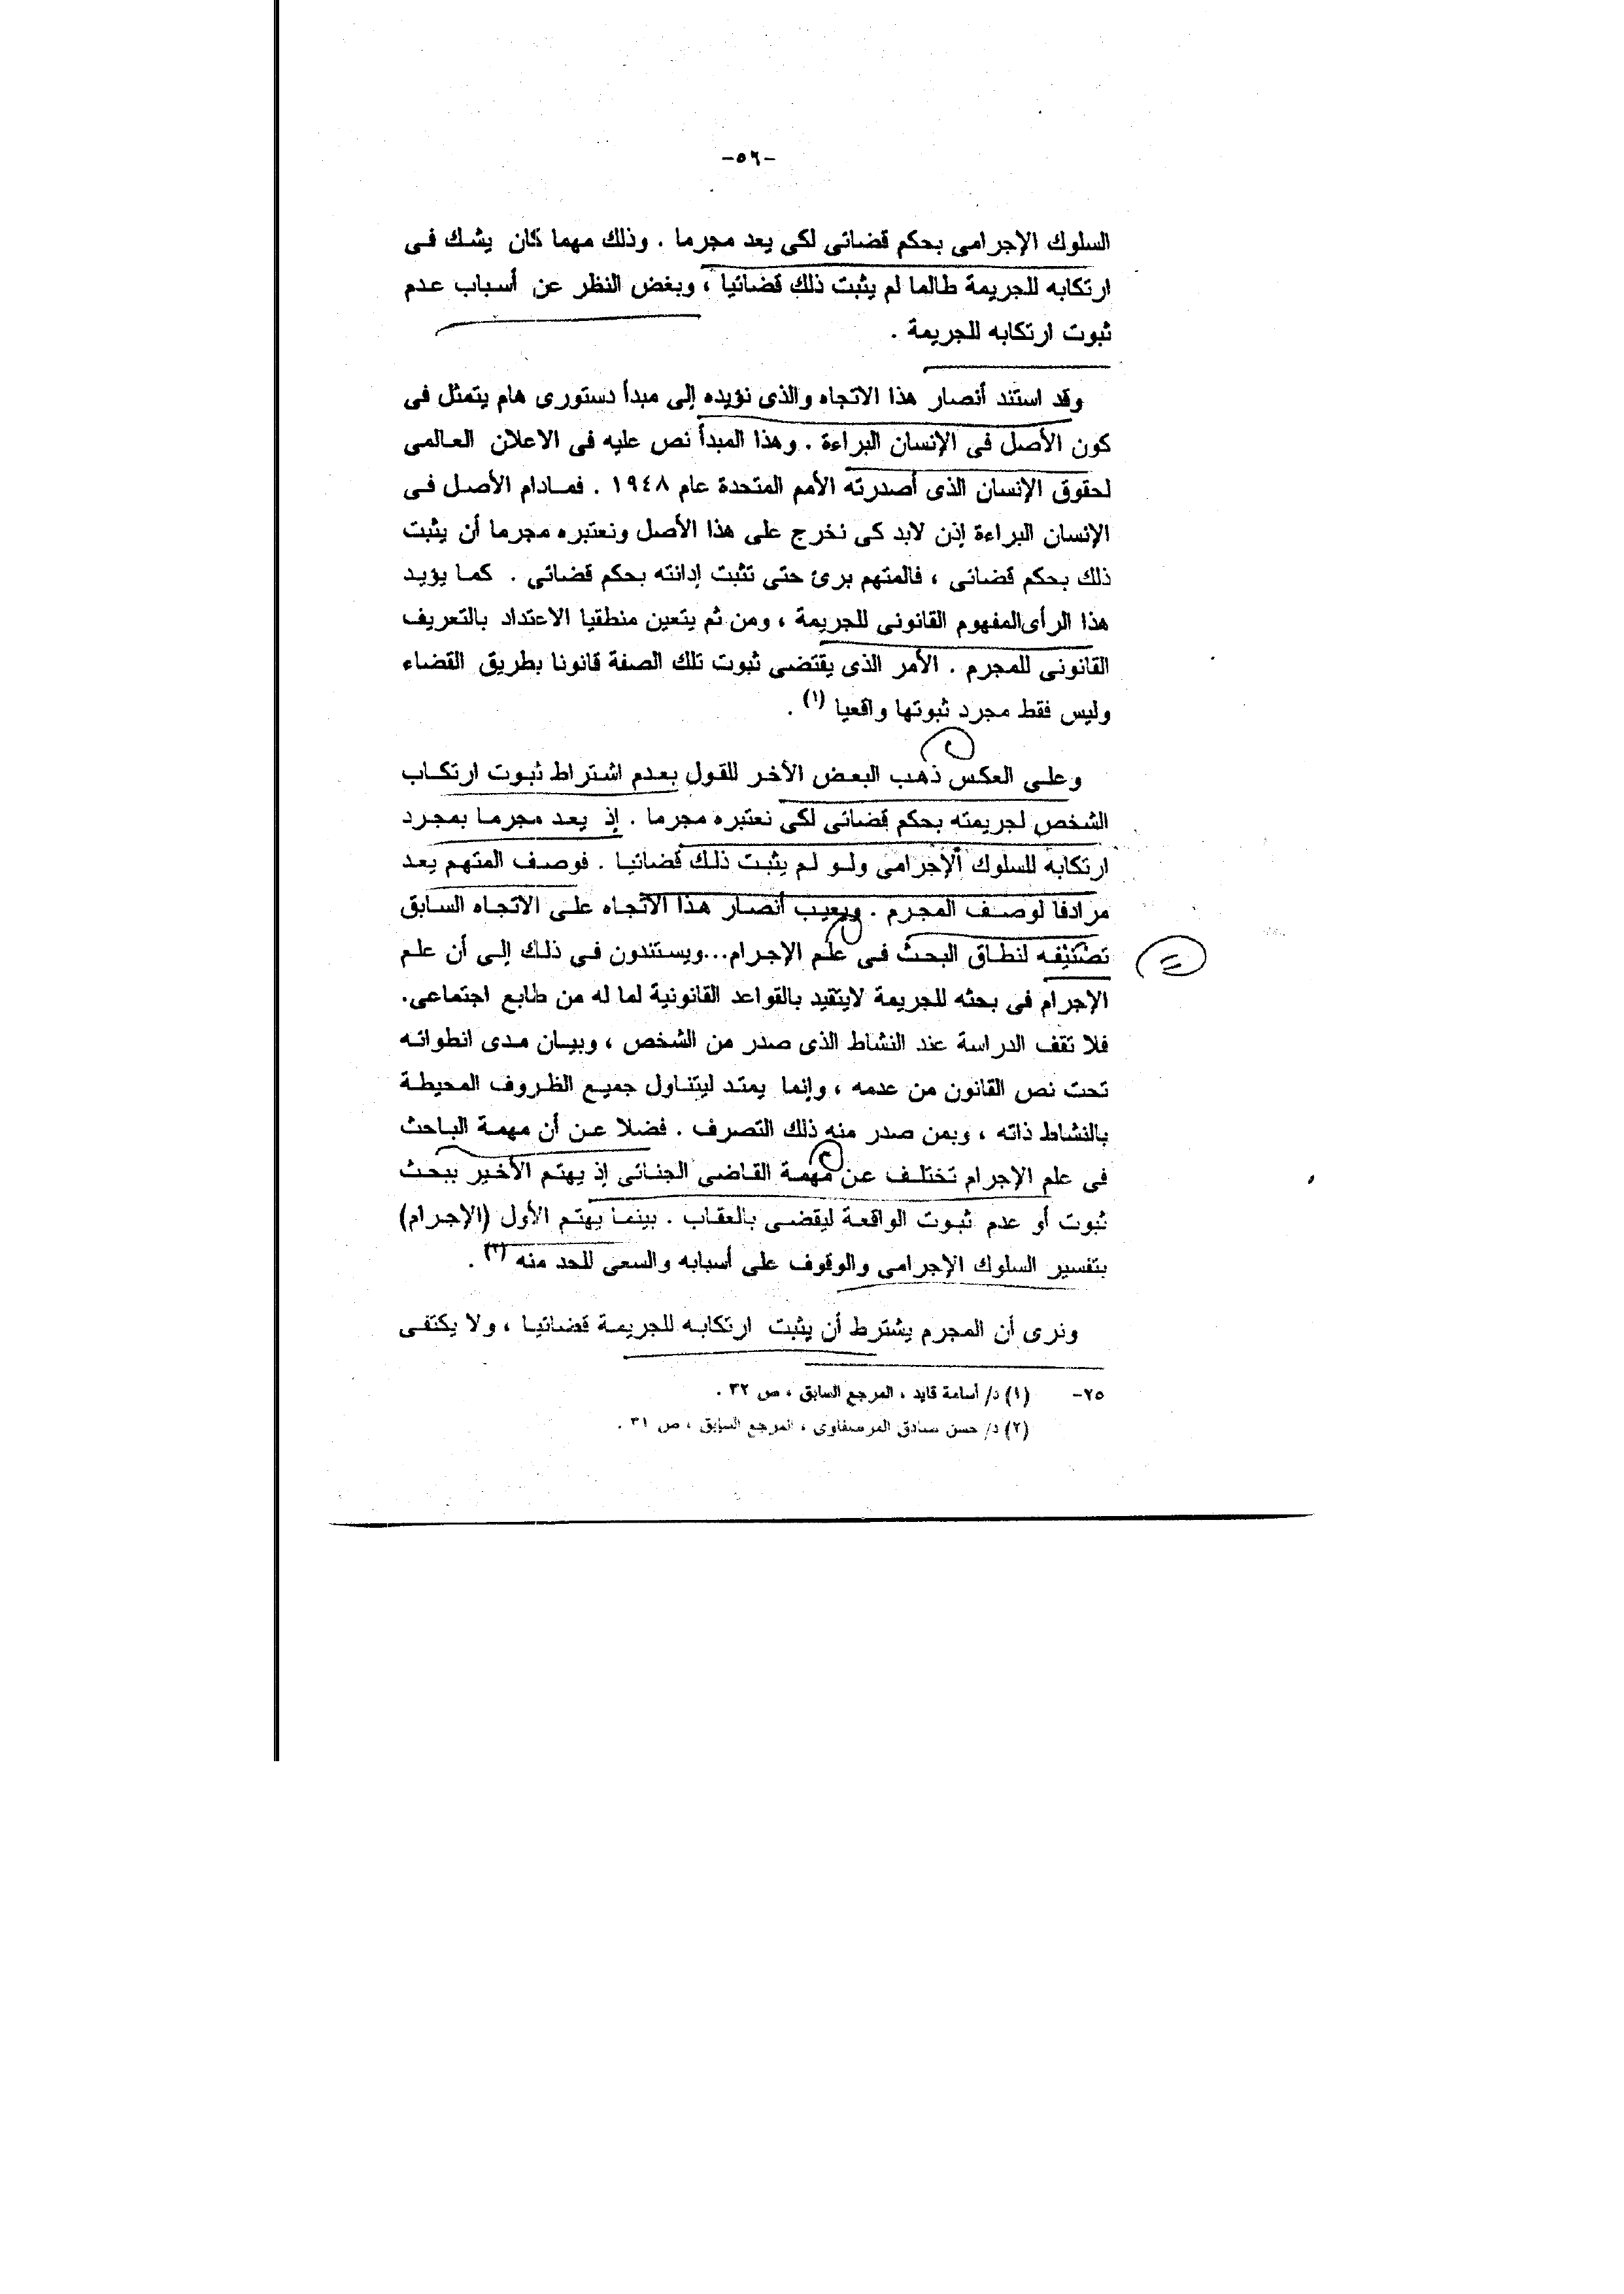 -٥٦-
السلوك الإجرامى بحكم قضائى لكى يعد مجرما . وذلك مهما كان يشك فى
ارتكابه للجريمة طالما لم يثبت ذلك قضائيا ، وبغض النظر عن أسباب عدم
ثبوت ارتكابه للجريمة .
وقد استند أنصار هذا الاتجاه والذى نؤيده إلى مبدأ دستورى هام يتمثل فى
كون الأصل فى الإنسان البراءة . وهذا المبدأ نص عليه فى الاعلان العالمى
لحقوق الإنسان الذى أصدرته الأمم المتحدة عام ١٩٤٨ . فمادام الأصل فى
الإنسان البراءة إذن لابد كى نخرج على هذا الأصل ونعتبره مجرما أن يثبت
ذلك بحكم قضائى ، فالمتهم برئ حتى تثبت إدانته بحكم قضائى . كما يؤيد
هذا الرأى المفهوم القانونى للجريمة ، ومن ثم يتعين منطقيا الاعتداد بالتعريف
القانونى للمجرم . الأمر الذى يقتضى ثبوت تلك الصفة قانونا بطريق القضاء
وليس فقط مجرد ثبوتها واقعيا (١) .
وعلى العكس ذهب البعض الأخر للقول بعدم اشتراط ثبوت ارتكاب
الشخص لجريمته بحكم قضائى لكى نعتبره مجرما . إذ يعد مجرما بمجرد
ارتكابه للسلوك الإجرامى ولو لم يثبت ذلك قضائيا . فوصف المتهم يعد
مرادفا لوصف المجرم . ويعيب أنصار هذا الاتجاه على الاتجاه السابق
لنطاق البحث فى علم الإجرام...ويستندون فى ذلك إلى أن علم
الإجرام فى بحثه للجريمة لايتقيد بالقواعد القانونية لما له من طابع اجتماعى.
فلا تقف الدراسة عند النشاط الذى صدر من الشخص ، وبيان مدى انطوائه
تحت نص القانون من عدمه ، وإنما يمتد ليتناول جميع الظروف المحيطة
بالنشاط ذاته ، وبمن صدر منه ذلك التصرف . فضلا عن أن مهمة الباحث
فى علم الإجرام تختلف عن مهمة القاضى الجنائى إذ يهتم الأخير ببحث
ثبوت أو عدم ثبوت الواقعة ليقضى بالعقاب . بينما يهتم الأول (الإجرام)
بتفسير السلوك الإجرامى والوقوف على أسبابه والسعى للحد منه (٢) .
ونرى أن المجرم يشترط أن يثبت ارتكابه للجريمة قضائيا ، ولا يكتفى
٢٥- (١) د/ أسامة قايد ، المرجع السابق ، ص ٣٢ .
(٢) د/ حسن صادق المرصفاوى ، المرجع السابق ، ص ٣١ .